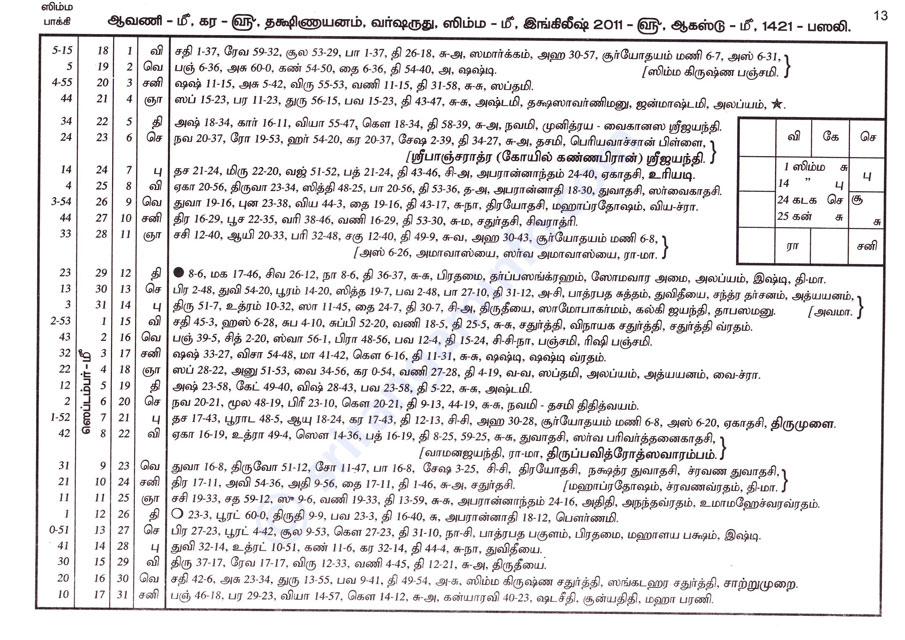 13
ஸிம்ம
பாக்கி
ஆவணி - மீ, கர - ௵, தக்ஷிணாயனம், வர்ஷருது, ஸிம்ம - மீ, இங்கிலீஷ் 2011 - ௵, ஆகஸ்டு - மீ, 1421 - பஸலி.
5-15 18 1 வி சதி 1-37, ரேவ 59-32, சூல 53-29, பா 1-37, தி 26-18, சு-அ, ஸமார்க்கம், அஹ 30-57, சூர்யோதயம் மணி 6-7, அஸ் 6-31,
5 19 2 வெ பஞ் 6-36, அசு 60-0, கண் 54-50, தை 6-36, தி 54-40, அ, ஷஷ்டி. [ஸிம்ம கிருஷ்ண பஞ்சமி.}
4-55 20 3 சனி ஷஷ் 11-15, அசு 5-42, விரு 55-53, வணி 11-15, தி 31-58, சு-சு, ஸப்தமி.
44 21 4 ஞா ஸப் 15-23, பர 11-23, துரு 56-15, பவ 15-23, தி 43-47, சு-சு, அஷ்டமி, தக்ஷஸாவர்ணிமனு, ஜன்மாஷ்டமி, அலப்யம், ★.
34 22 5 தி அஷ் 18-34, கார் 16-11, வியா 55-47, கௌ 18-34, தி 58-39, சு-அ, நவமி, முனித்ரய - வைகானஸ ஸ்ரீஜயந்தி.
24 23 6 செ நவ 20-37, ரோ 19-53, ஹர் 54-20, கர 20-37, சேஷ 2-39, தி 34-27, சு-அ, தசமி, பெரியவாச்சான் பிள்ளை,
[ஸ்ரீபாஞ்சராத்ர (கோயில் கண்ணபிரான்) ஸ்ரீஜயந்தி.}
14 24 7 பு தச 21-24, மிரு 22-20, வஜ் 51-52, பத் 21-24, தி 43-46, சி-அ, அபரான்னாந்தம் 24-40, ஏகாதசி, உரியடி.
4 25 8 வி ஏகா 20-56, திருவா 23-34, ஸித்தி 48-25, பா 20-56, தி 53-36, த-அ, அபரான்னாதி 18-30, துவாதசி, ஸர்வைகாதசி.
3-54 26 9 வெ துவா 19-16, புன 23-38, விய 44-3, தை 19-16, தி 43-17, சு-நா, திரயோதசி, மஹாப்ரதோஷம், விய-ச்ரா.
44 27 10 சனி திர 16-29, பூச 22-35, வரி 38-46, வணி 16-29, தி 53-30, சு-ம, சதுர்தசி, சிவராத்ரி.
33 28 11 ஞா சசி 12-40, ஆயி 20-33, பரி 32-48, சகு 12-40, தி 49-9, சு-வ, அஹ 30-43, சூர்யோதயம் மணி 6-8,
[அஸ் 6-26, அமாவாஸ்யை, ஸர்வ அமாவாஸ்யை, ரா-மா.}
வி கே செ
1 ஸிம்ம சு
14 ” பு
24 கடக செ
25 கன் சு
பு
சூ
சு
ரா சனி
23 29 12 தி ● 8-6, மக 17-46, சிவ 26-12, நா 8-6, தி 36-37, சு-சு, பிரதமை, தர்ப்பஸங்க்ரஹம், ஸோமவார அமை, அலப்யம், இஷ்டி, தி-மா.
13 30 13 செ பிர 2-48, துவி 54-20, பூரம் 14-20, ஸித்த 19-7, பவ 2-48, பா 27-10, தி 31-12, அ-சி, பாத்ரபத சுத்தம், துவிதீயை, சந்த்ர தர்சனம், அத்யயனம்,
3 31 14 பு திரு 51-7, உத்ரம் 10-32, ஸா 11-45, தை 24-7, தி 30-7, சி-அ, திருதீயை, ஸாமோபாகர்மம், கல்கி ஜயந்தி, தாபஸமனு. [அவமா.}
ஸெப்டம்பர் - மீ
2-53 1 15 வி சதி 45-3, ஹஸ் 6-28, சுப 4-10, சுப்பி 52-20, வணி 18-5, தி 25-5, சு-சு, சதுர்த்தி, விநாயக சதுர்த்தி, சதுர்த்தி வ்ரதம்.
43 2 16 வெ பஞ் 39-5, சித் 2-20, ஸ்வா 56-1, பிரா 48-56, பவ 12-4, தி 15-24, சி-சி-நா, பஞ்சமி, ரிஷி பஞ்சமி.
32 3 17 சனி ஷஷ் 33-27, விசா 54-48, மா 41-42, கௌ 6-16, தி 11-31, சு-சு, ஷஷ்டி, ஷஷ்டி வ்ரதம்.
22 4 18 ஞா ஸப் 28-22, அனு 51-53, வை 34-56, கர 0-54, வணி 27-28, தி 4-19, வ-வ, ஸப்தமி, அலப்யம், அத்யயனம், வை-ச்ரா.
12 5 19 தி அஷ் 23-58, கேட் 49-40, விஷ் 28-43, பவ 23-58, தி 5-22, சு-சு, அஷ்டமி.
2 6 20 செ நவ 20-21, மூல 48-19, பிரீ 23-10, கௌ 20-21, தி 9-13, 44-19, சு-சு, நவமி - தசமி திதித்வயம்.
1-52 7 21 பு தச 17-43, பூராட 48-5, ஆயு 18-24, கர 17-43, தி 12-13, சி-சி, அஹ 30-28, சூர்யோதயம் மணி 6-8, அஸ் 6-20, ஏகாதசி, திருமுளை.
42 8 22 வி ஏகா 16-19, உத்ரா 49-4, ஸௌ 14-36, பத் 16-19, தி 8-25, 59-25, சு-சு, துவாதசி, ஸர்வ பரிவர்த்தனைகாதசி,
[வாமனஜயந்தி, ரா-மா, திருப்பவித்ரோத்ஸவாரம்பம்.}
31 9 23 வெ துவா 16-8, திருவோ 51-12, சோ 11-47, பா 16-8, சேஷ 3-25, சி-சி, திரயோதசி, நக்ஷத்ர துவாதசி, ச்ரவண துவாதசி,
21 10 24 சனி திர 17-11, அவி 54-36, அதி 9-56, தை 17-11, தி 1-46, சு-அ, சதுர்தசி. [மஹாப்ரதோஷம், ச்ரவணவ்ரதம், தி-மா.}
11 11 25 ஞா சசி 19-33, சத 59-12, ஸு 9-6, வணி 19-33, தி 13-59, சு-சு, அபரான்னாந்தம் 24-16, அதிதி, அநந்தவ்ரதம், உமாமஹேச்வரவ்ரதம்.
1 12 26 தி ○ 23-3, பூரட் 60-0, திருதி 9-9, பவ 23-3, தி 16-40, சு, அபரான்னாதி 18-12, பௌர்ணமி.
0-51 13 27 செ பிர 27-23, பூரட் 4-42, சூல 9-53, கௌ 27-23, தி 31-10, நா-சி, பாத்ரபத பகுளம், பிரதமை, மஹாளய பக்ஷம், இஷ்டி.
41 14 28 பு துவி 32-14, உத்ரட் 10-51, கண் 11-6, கர 32-14, தி 44-4, சு-நா, துவிதீயை.
30 15 29 வி திரு 37-17, ரேவ 17-17, விரு 12-33, வணி 4-45, தி 12-21, சு-அ, திருதீயை.
20 16 30 வெ சதி 42-6, அசு 23-34, துரு 13-55, பவ 9-41, தி 49-54, அ-சு, ஸிம்ம கிருஷ்ண சதுர்த்தி, ஸங்கடஹர சதுர்த்தி, சாற்றுமுறை.
10 17 31 சனி பஞ் 46-18, பர 29-23, வியா 14-57, கௌ 14-12, சு-அ, கன்யாரவி 40-23, ஷடசீதி, சூன்யதிதி, மஹா பரணி.